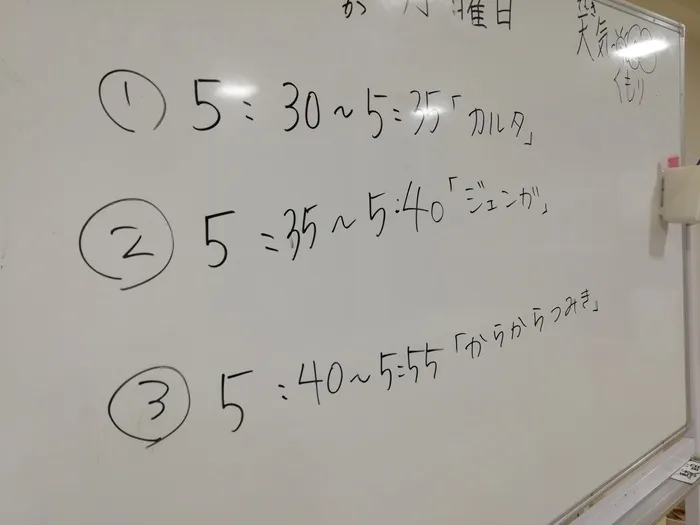 か月曜日
てんき
天気
くもり
① 5:30~5:35「カルタ」
② 5:35~5:40「ジェンガ」
③ 5:40~5:55「からからつみき」